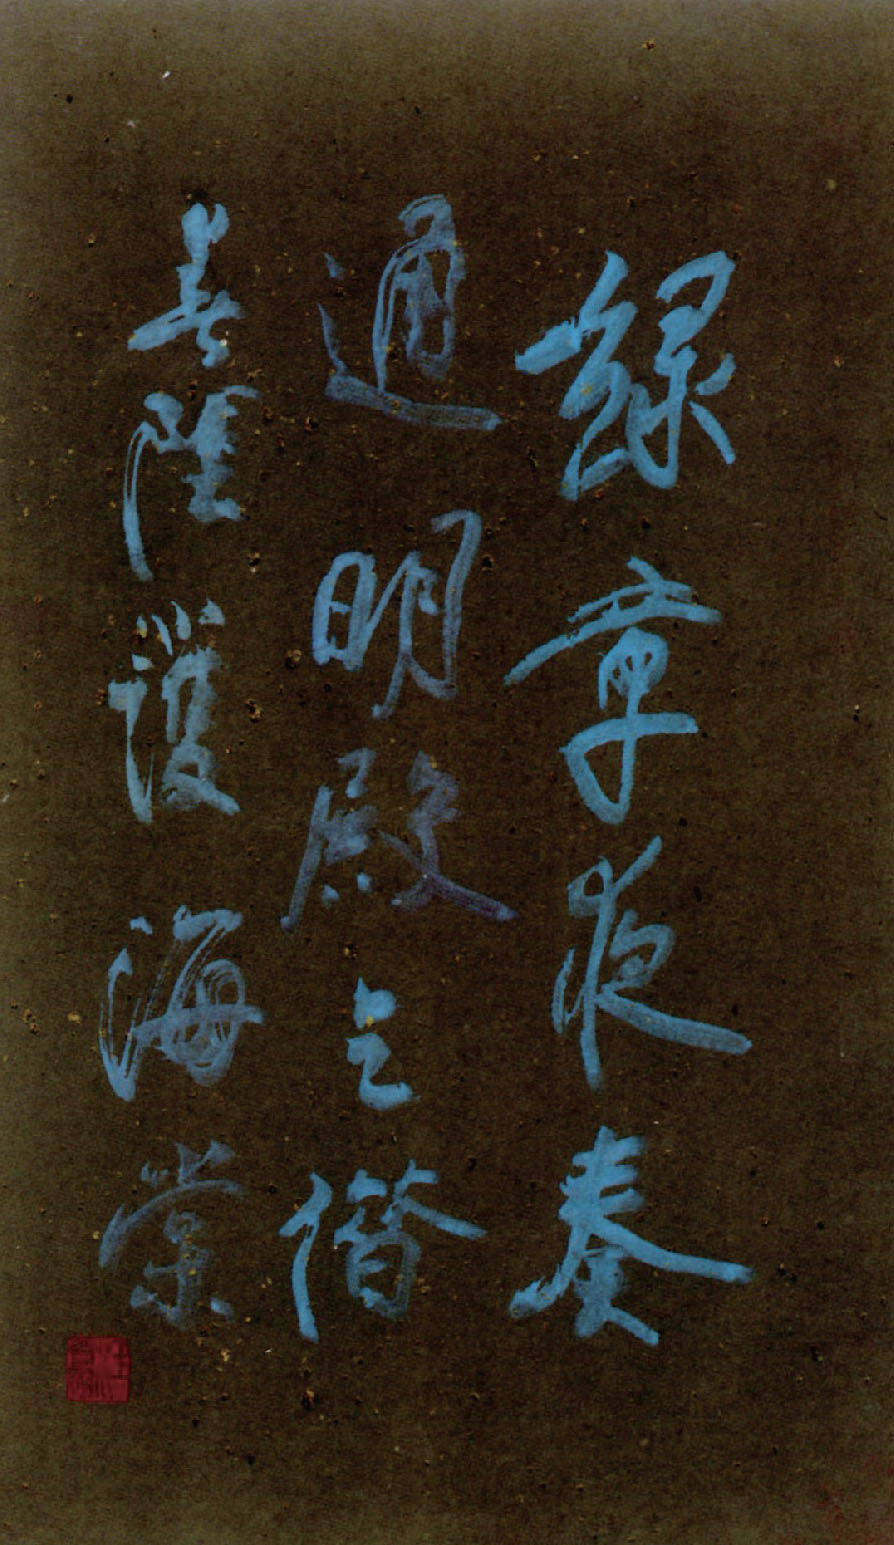 綠章夜奏
通明殿乞借
春陰護海棠